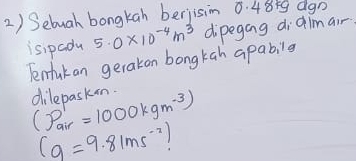 2) Sebuah bongkah berjisim 0.48kg dgn
isipadu 5.0×10⁻⁴m³ dipegang di dlm air.
Tentukan gerakan bongkah apabila
dilepaskan.
(ρair = 1000kgm⁻³)
(g = 9.81ms⁻²)